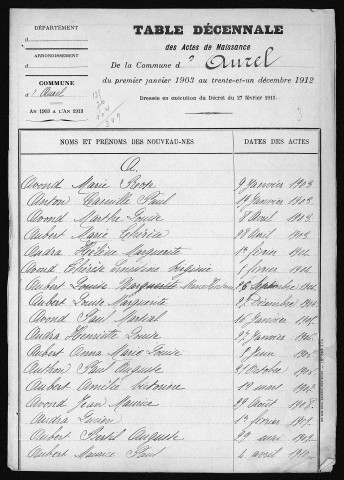 DÉPARTEMENT
d
ARRONDISSEMENT
d
COMMUNE
d'Aurel
AN 1903 A L'AN 1912
TABLE DÉCENNALE
des Actes de Naissance
De la Commune d'Aurel
du premier janvier 1903 au trente-et-un décembre 1912
Dressée en exécution du Décret du 27 février 1913.
3
NOMS ET PRÉNOMS DES NOUVEAU-NÉS DATES DES ACTES
A.
Avond Marie Rose 9 Janvier 1903
Anton Camille Paul 19 Janvier 1903
Avond Marthe Louise 8 Avril 1903
Aubert Marie Thérèse 28 Avril 1903
Andra Hélène Marguerite 1er février 1904
Avond Thérèse Virginie 1 février 1904
Aubert Louise Marguerite 26 Septembre 1904
Aubert Louise Marguerite 22 Décembre 1904
Avond Paul 16 Janvier 1905
Andra Henriette Louise 27 Janvier 1906
Aubert Anna Marie Louise 8 Juin
Anthon Paul Auguste 21 Octobre
Aubert Amélie Victorine 19 mars
Avond Jean Maurice 29 Août 1908
Andra Lucien 1er février 1909
Aubert Auguste 29 mai 1909
Aubert Maurice Paul 4 avril